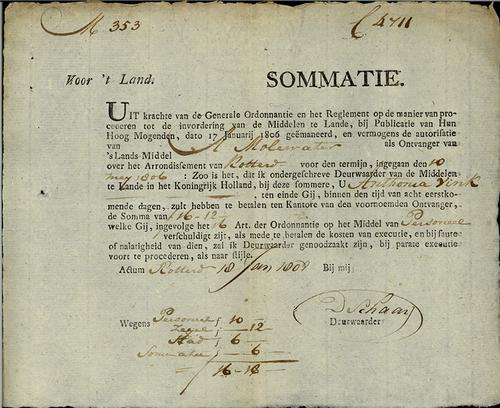 N 353
C 4711
Voor 't Land.
SOMMATIE.
UIT krachte van de Generale Ordonnantie en het Reglement op de manier van pro-
cedeeren tot de invordering van de Middelen te Lande, bij Publicatie van Hun
Hoog Mogenden, dato 17 Januarij 1806 geëmaneerd, en vermogens de autorisatie
van A Molewater als Ontvanger van
's Lands Middel
over het Arrondissement van Rotterd voor den termijn, ingegaan den 10
may 1806 : Zoo is het, dit ik ondergeschreve Deurwaarder van de Middelen
te Lande in het Koningrijk Holland, bij deze sommere, U Anthonia Vink
, ten einde Gij, binnen den tijd van acht eerstko-
mende dagen, zult hebben te betalen ten Kantore van den voornoemden Ontvanger,
de Somma van f 16-12
welke Gij, ingevolge het 16 Art. der Ordonnantie op het Middel van Personeel
verschuldigt zijt, als mede te betalen de kosten van executie, en bij faute
of nalatigheid van dien, zal ik Deurwaarder genoodzaakt zijn, bij parate executie
voort te procederen, als naar stijle.
Actum Rotterd 18 Jan 1808 Bij mij
D Schaay
Deurwaarder
Wegens Personeel f 10
Zegel - 12
Stad 6
Sommatie - 6
16-18